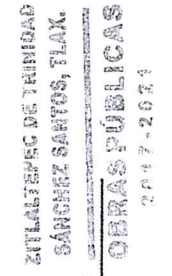 ZITLALTEPEC DE TRINIDAD
SÁNCHEZ SANTOS, TLAX.
OBRAS PÚBLICAS
2017-2021